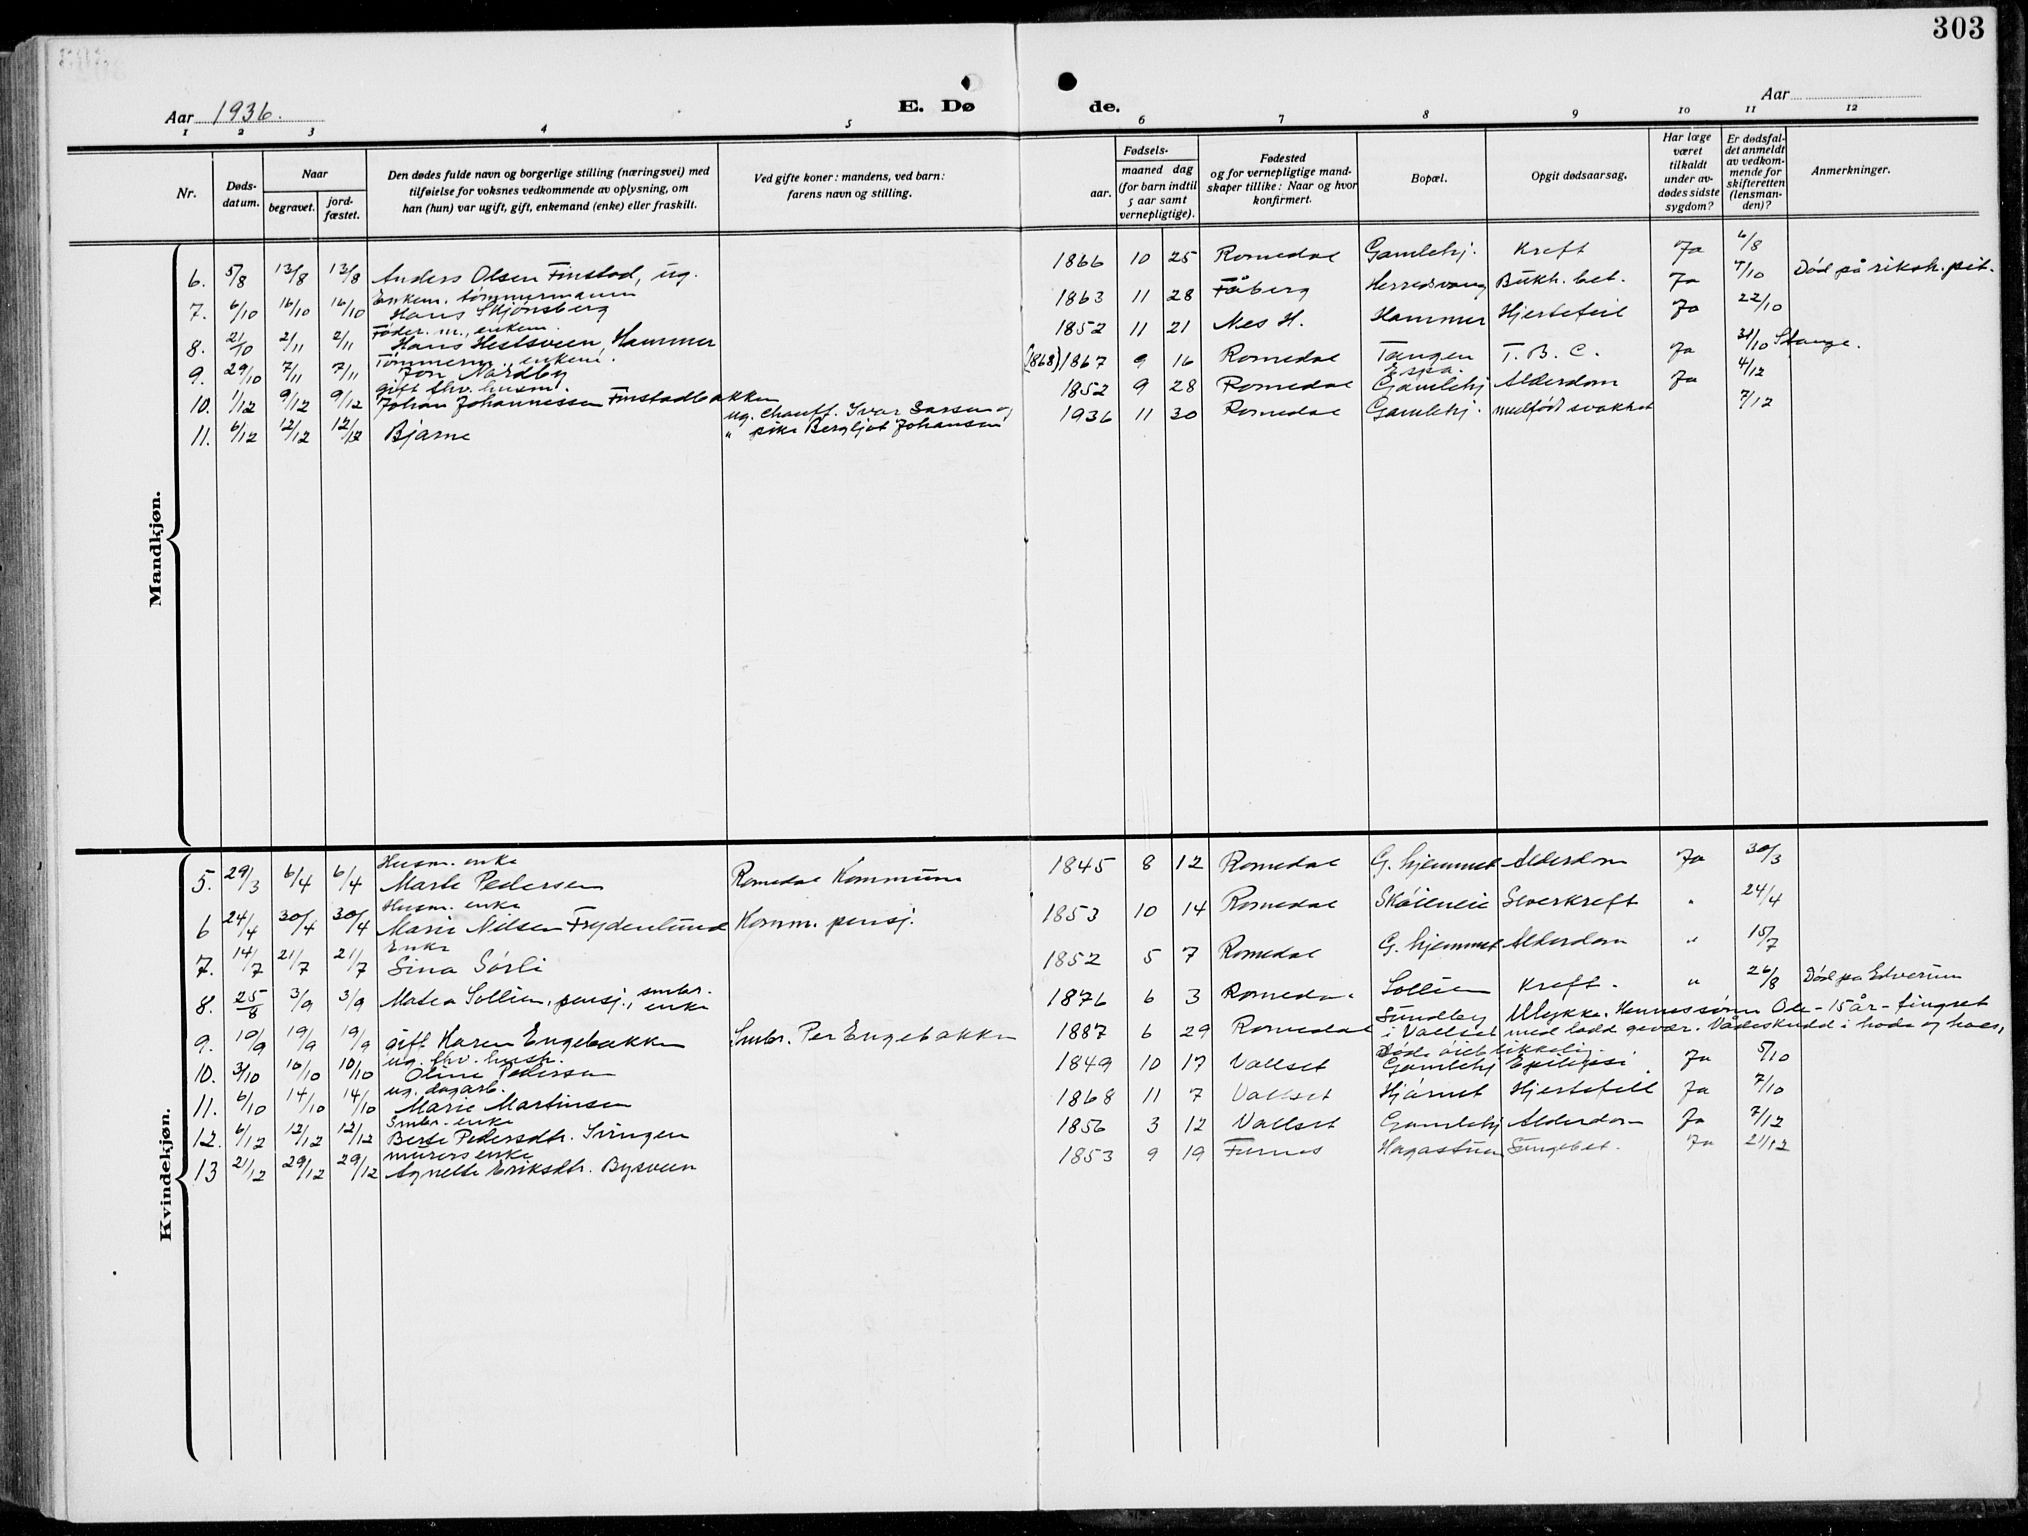 303
Aar 1936.
E. Dø de.
Aar
1 2 3 4 5 6 7 8 9 10 11 12
Nr.
Døds-
datum.
Naar
begravet.
jord-
fæstet.
Den dødes fulde navn og borgerlige stilling (næringsvei) med
tilføielse for voksnes vedkommende av oplysning, om
han (hun) var ugift, gift, enkemand (enke) eller fraskilt.
Ved gifte koner: mandens, ved barn:
farens navn og stilling.
Fødsels-
aar.
maaned dag
(for barn indtil
5 aar samt
vernepligtige).
Fødested
og for vernepligtige mand-
skaper tillike: Naar og hvor
konfirmert.
Bopæl.
Opgit dødsaarsag.
Har læge
været
tilkaldt
under av-
dødes sidste
sygdom?
Er dødsfal-
det anmeldt
av vedkom-
mende for
skifteretten
(lensman-
den)?
Anmerkninger.
Mandkjøn.
6. 5/8 13/8 13/8 Anders Olsen Finstad, ug. 1866 10 25 Romedal Gamlehj. Kreft Ja 6/8
Enkem. tømmermann
7. 6/10 16/10 16/10 Hans Skjønsberg 1863 11 28 Fåberg Herredsvang Bukh. bet. Ja 7/10 Død på riksh.pit.
Føder. m., enkem.
8. 21/10 2/11 2/11 Hans Hestsveen, Hammer 1852 11 21 Nes H. Hammer Hjertefeil Ja 22/10
Tømmerm., enkem.
9. 29/10 7/11 7/11 Jon Nordby (1868) 1867 9 16 Romedal Tangen T. B. C. Ja 31/10 Stange.
Espa.
gift fhv. husm.
10. 1/12 9/12 9/12 Johan Johannessen Finstadbakken 1852 9 28 Romedal Gamlehj Alderdom Ja 4/12
11. 6/12 12/12 12/12 Bjarne ug. chauff. Ivar Larsen og 1936 11 30 Romedal Gamlehj. medfødt svakhet 7/12
" pike Bergljot Johansen
Kvindekjøn.
Husm. enke
5. 29/3 6/4 6/4 Marte Pedersen Romedal Kommune 1845 8 12 Romedal G. hjemmet Alderdom Ja 30/3
Husm. enke
6 24/4 30/4 30/4 Marie Nilsen Frydenlund Komm. pensj. 1853 10 14 Romedal Skøieneie Leverkreft " 24/4
Enke
7. 14/7 21/7 21/7 Sina Sørli 1852 5 7 Romedal G. hjemmet Alderdom " 15/7
8. 25/8 3/9 3/9 Matea Sollien, pensj., smbr. enke 1876 6 3 Romedal Sollien Kreft. " 26/8 Død på Elverum
9. 10/9 19/9 19/9 gift Karen Engebakken Smbr. Per Engebakken 1887 6 29 Romedal Sundby i Vallset Ulykke. Hennes sønn Ole - 15 år - fingret
med ladd gevær. Vådeskudd i hode og hals,
Døde øieblikkelig.
ug. fhv. hush.
10. 3/10 10/10 10/10 Oline Pedersen 1849 10 17 Vallset Gamlehj Epilepsi Ja 5/10
ug. dagarb.
11. 6/10 14/10 14/10 Marie Martinsen 1868 11 7 Vallset Hjørnet Hjertefeil Ja 7/10
Smbr. enke
12. 6/12 12/12 12/12 Berte Pedersdtr. Svingen 1856 3 12 Vallset Gamlehj Alderdom Ja 7/12
murers enke
13 21/12 29/12 29/12 Agnette Eriksdtr. Bysveen 1853 9 19 Furnes Hagastuen Lungebet. Ja 21/12